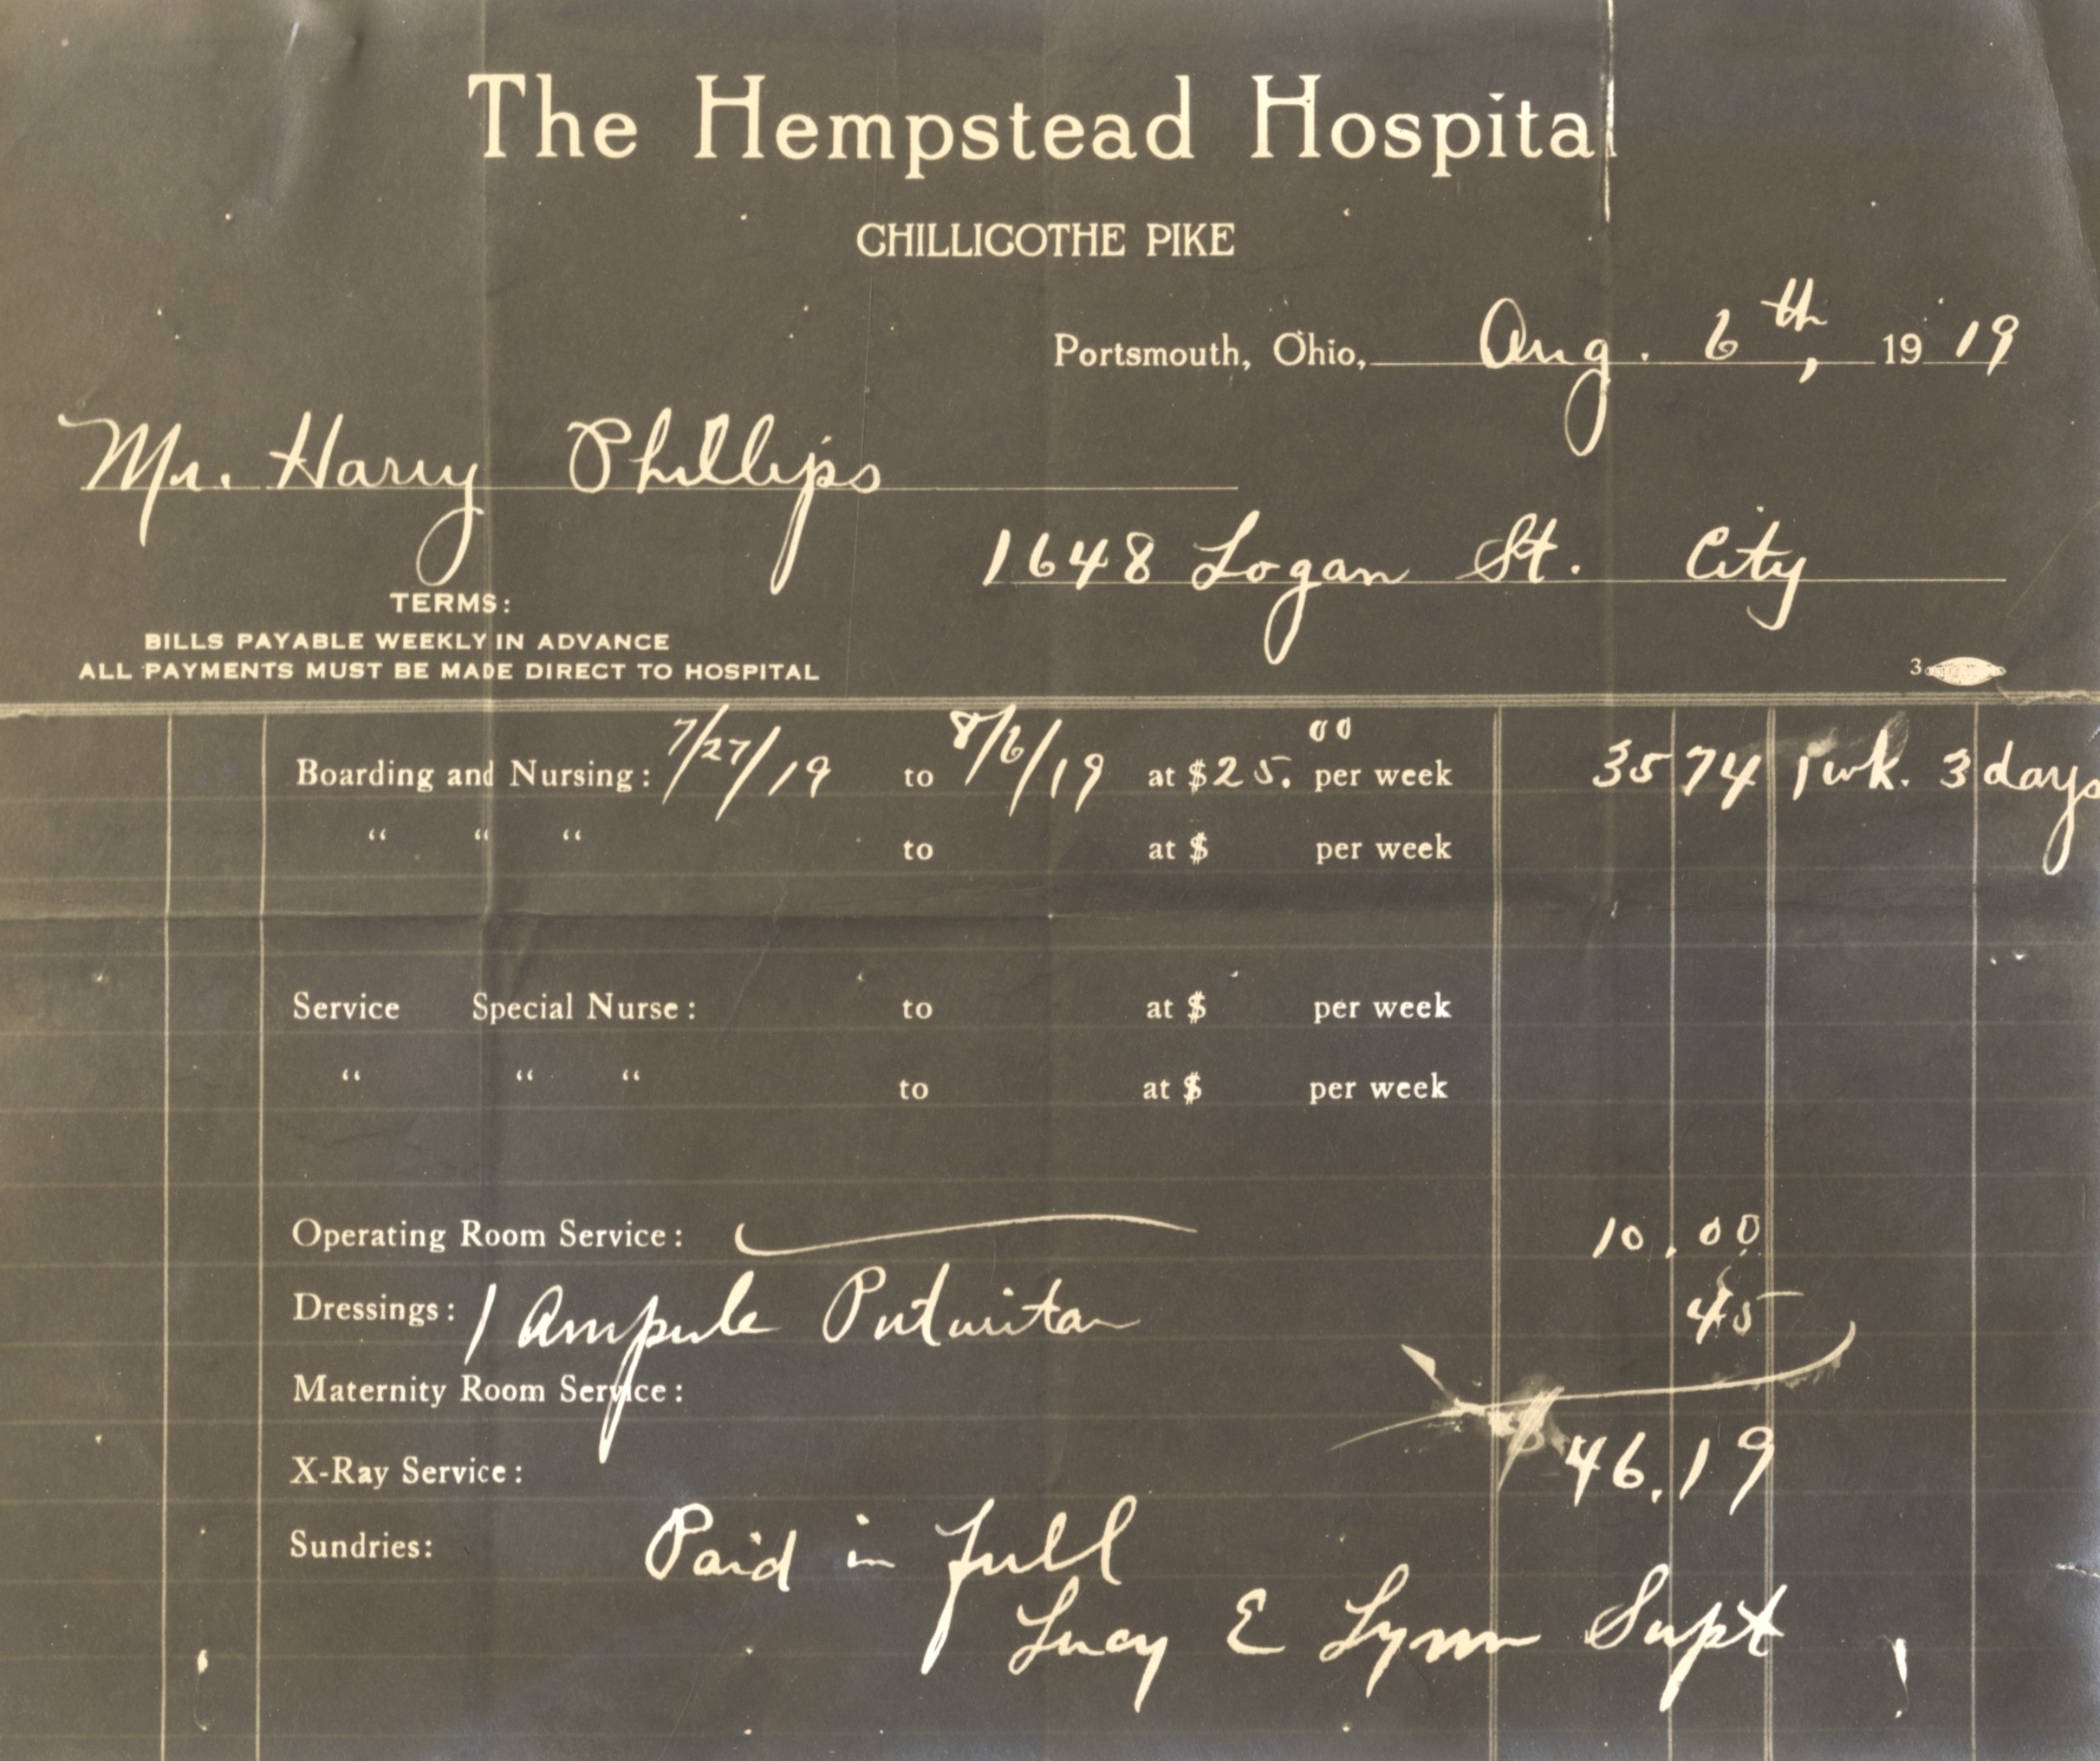 The Hempstead Hospital
CHILLICOTHE PIKE
Portsmouth, Ohio, Aug. 6th, 1919
Mr. Harry Phillips
1648 Logan St. City
TERMS:
BILLS PAYABLE WEEKLY IN ADVANCE
ALL PAYMENTS MUST BE MADE DIRECT TO HOSPITAL
3
Boarding and Nursing: 7/27/19 to 8/6/19 at $25.00 per week 35 74 1 wk. 3 days
" " " to at $ per week
Service Special Nurse: to at $ per week
" " " to at $ per week
Operating Room Service: 10.00
Dressings: 1 Ampule Pituitan 45
Maternity Room Service:
X-Ray Service: 46.19
Sundries: Paid in full
Lucy E Lynn Supt